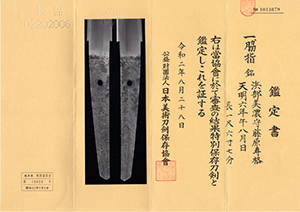 鑑定書
一、脇指 銘
浜部美濃守藤原寿格
天明六年八月日
長一尺六寸七分
右は当協会に於て審査の結果特別保存刀剣と
鑑定しこれを証する
令和二年八月二十八日
公益財団法人日本美術刀剣保存協会